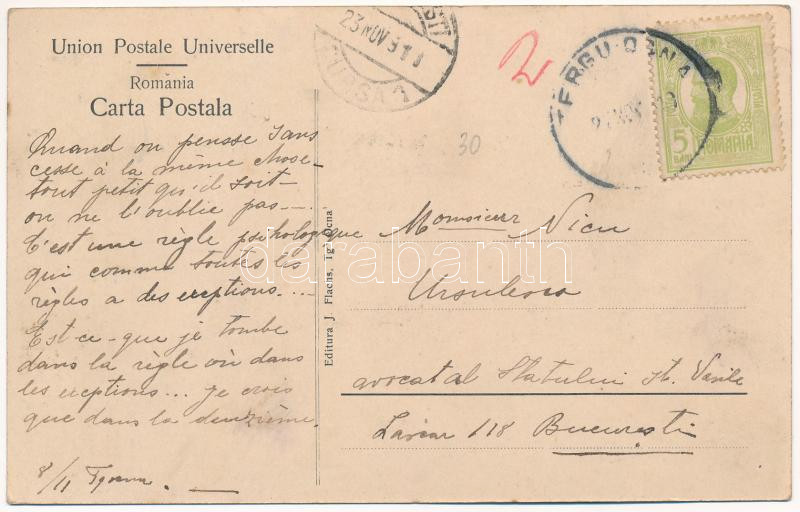 Union Postale Universelle
România
Carta Postala
Quand on pensse sans
cesse à la même chose-
tout petit qu'il soit-
on ne l'oublie pas—.
C'est une règle psihologique
qui comme toutes les
règles a des exeptions....
Est-ce-que je tombe
dans la règle où dans
les exeptions... Je crois
que dans la deuzième.
8/11
Editura J. Flachs, Tg. Ocna
23 NOV 911
2
30
TÊRGU OCNA
5
BANI
ROMANIA
Monsieur Nicu
Ursulescu
avocat al Statului St. Vasile
Lascar 118 Bucuresti
darabanth